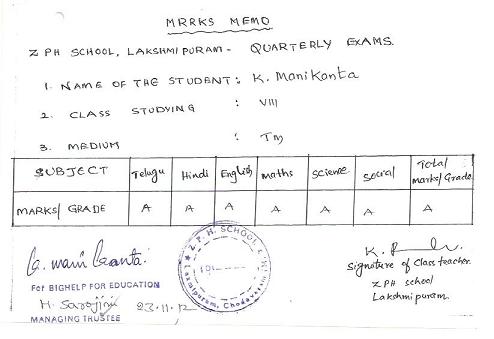 MRRKS MEMO
Z PH SCHOOL, LAKSHMIPURAM - QUARTERLY EXAMS.
1. NAME OF THE STUDENT : K. Manikanta
2. CLASS STUDYING : VIII
3. MEDIUM : TM
SUBJECT Telugu Hindi English maths science social Total marks/Grade
MARKS/ GRADE A A A A A A A
K. mani kanta.
Z. P. H. SCHOOL
Laxmipuram, Chodavaram
K.
Signature of Class teacher.
Z PH school
Lakshmipuram.
For BIGHELP FOR EDUCATION
H. Sarojini 23.11.12
MANAGING TRUSTEE